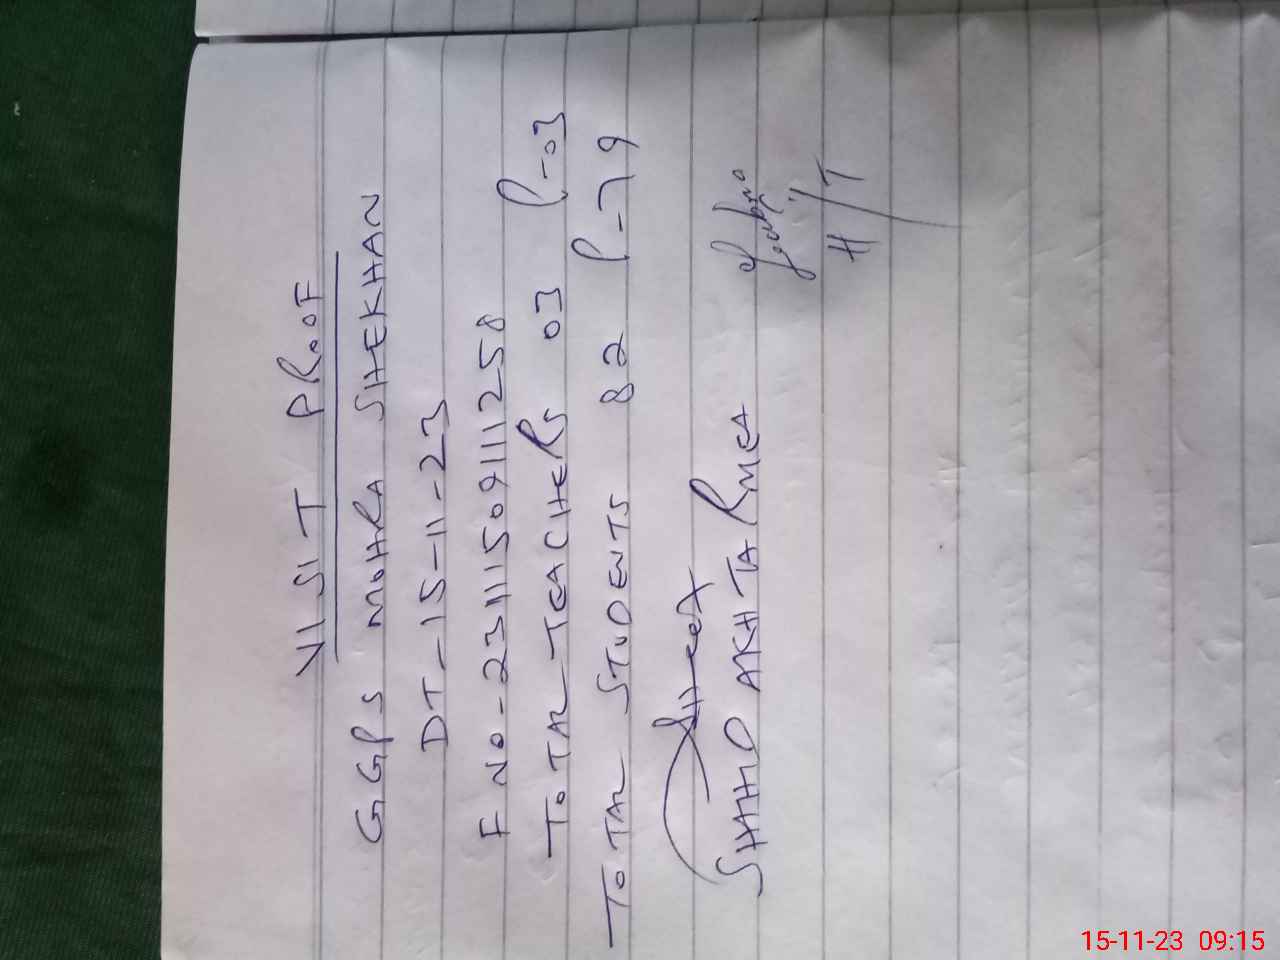 VISIT PROOF
GGPS MOHRA SHEKHAN
DT-15-11-23
F NO-23111509111258
TOTAL TEACHERS 03 P-03
TOTAL STUDENTS 82 P-79
SHAHID AKHTAR MEA
H/T
15-11-23 09:15